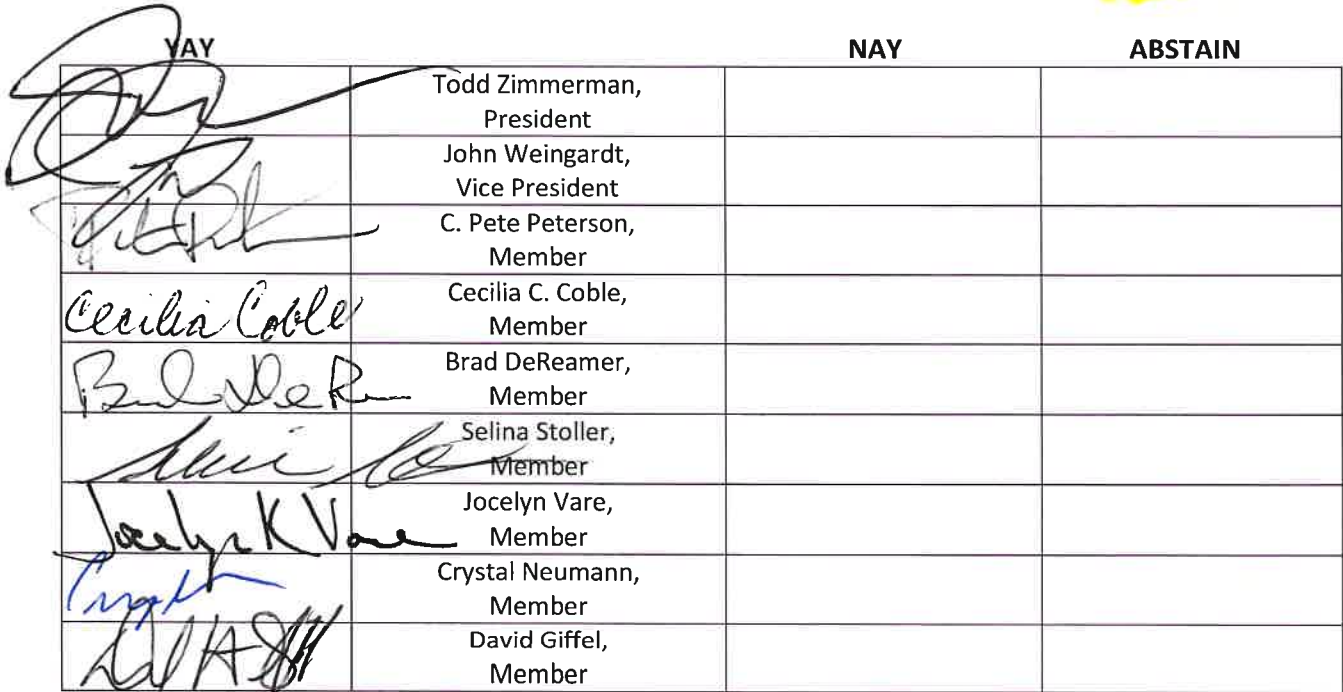 YAY NAY ABSTAIN
Todd Zimmerman,
President
John Weingardt,
Vice President
C. Pete Peterson,
Member
Cecilia Coble Cecilia C. Coble,
Member
Brad DeReamer,
Member
Selina Stoller,
Member
Jocelyn K Vare Jocelyn Vare,
Member
Crystal Neumann,
Member
David Giffel,
Member